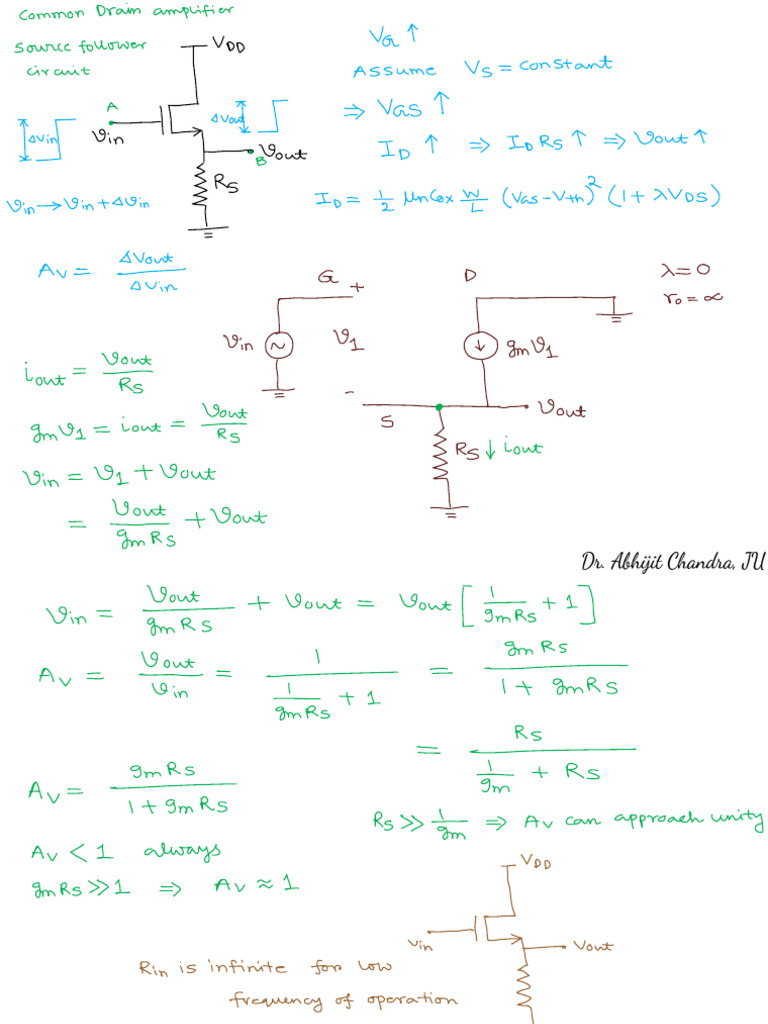 Common Drain amplifier
Source follower
circuit
VDD
A
Vin
ΔVin
ΔVout
Vout
B
RS
Vin → Vin + ΔVin
VG ↑
Assume VS = constant
⇒ VGS ↑
ID ↑ ⇒ ID RS ↑ ⇒ Vout ↑
ID = 1/2 μnCox W/L (VGS-Vth)² (1 + λVDS)
Av = ΔVout/ΔVin
G
+
D
λ = 0
ro = ∞
Vin
~
V1
gmV1
-
S
Vout
RS ↓ iout
iout = Vout/RS
gmV1 = iout = Vout/RS
Vin = V1 + Vout
= Vout/gmRS + Vout
Dr. Abhijit Chandra, JU
Vin = Vout/gmRS + Vout = Vout [1/gmRS + 1]
Av = Vout/Vin = 1/(1/gmRS + 1) = gmRS/(1 + gmRS)
= RS/(1/gm + RS)
Av = gmRS/(1 + gmRS)
RS >> 1/gm ⇒ Av can approach unity
Av < 1 always
gmRS >> 1 ⇒ Av ≈ 1
VDD
Vin
Vout
Rin is infinite for low
frequency of operation